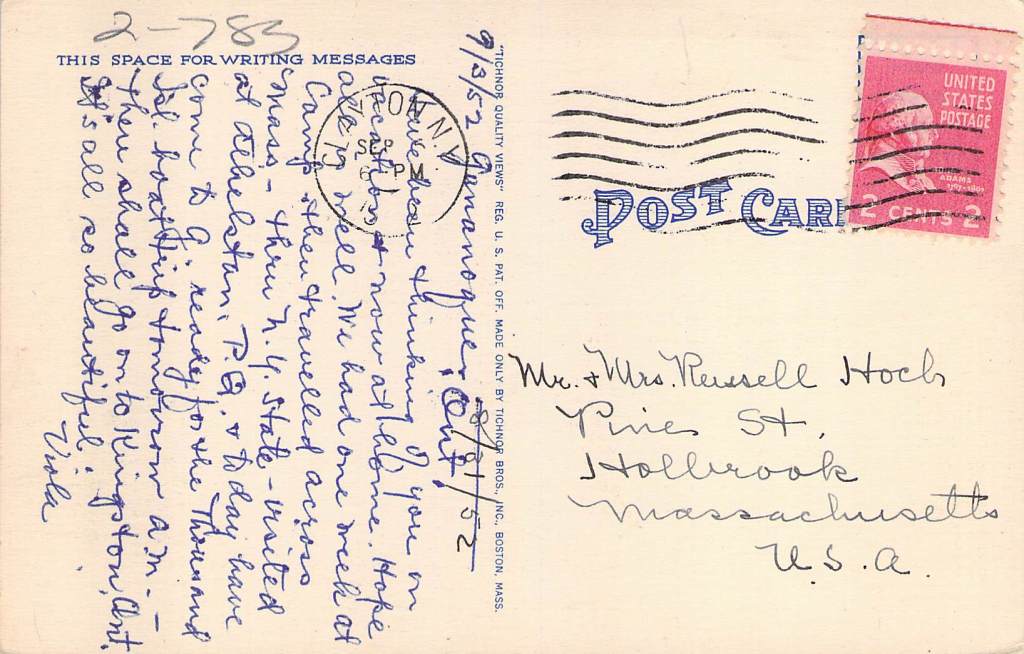 2-783
THIS SPACE FOR WRITING MESSAGES
9/3/52 Gananoque, Ont.
8/31/52
Have been thinking of you on
vacation & now at home. Hope
all is well. We had one week at
Camp then travelled across
Mass - thru N.Y. State - visited
at Athelstan, P.Q. & to-day have
come to G. ready for the Thousand
Isl. boat trip tomorrow a.m. -
then shall go on to Kingston, Ont.
It's all so beautiful.
Viola
"TICHNOR QUALITY VIEWS" REG. U. S. PAT. OFF. MADE ONLY BY TICHNOR BROS., INC., BOSTON, MASS.
N.Y.
SEP
PM
POST CARD
UNITED
STATES
POSTAGE
ADAMS
2 CENTS 2
Mr. & Mrs. Russell Hoch
Pine St.
Holbrook
Massachusetts
U.S.A.